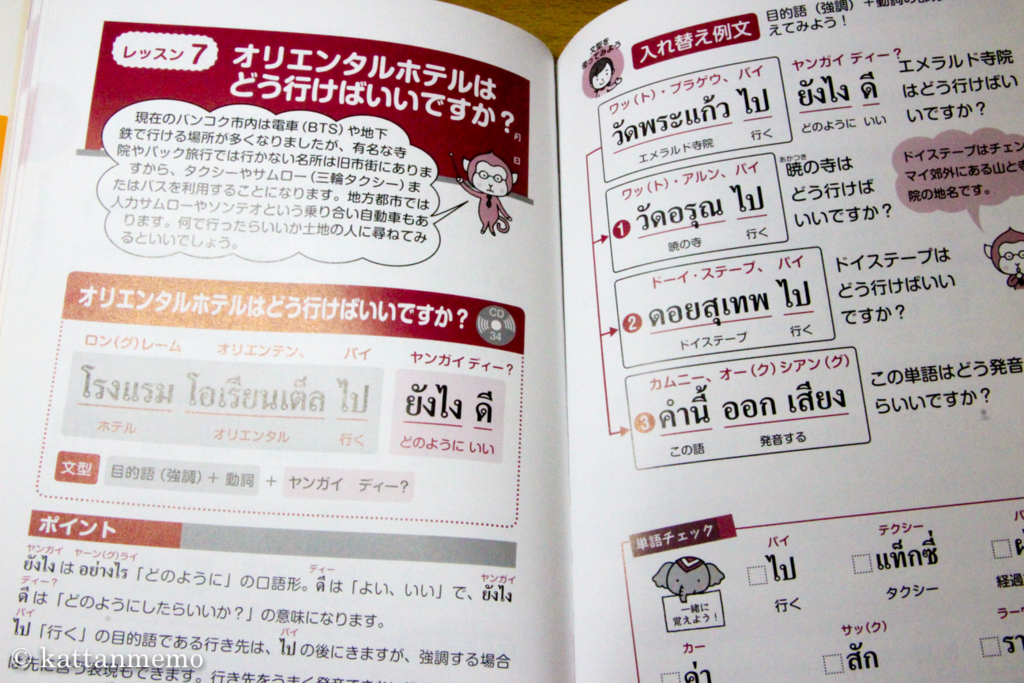 レッスン 7
オリエンタルホテルは
どう行けばいいですか？
月
日
現在のバンコク市内は電車（BTS）や地下
鉄で行ける場所が多くなりましたが、有名な寺
院やパック旅行では行かない名所は旧市街にありま
すから、タクシーやサムロー（三輪タクシー）ま
たはバスを利用することになります。地方都市では
人力サムローやソンテオという乗り合い自動車もあ
ります。何で行ったらいいか土地の人に尋ねてみ
るといいでしょう。
オリエンタルホテルはどう行けばいいですか？
CD
34
ロン(グ)レーム オリエンテン、 パイ ヤンガイ ディー?
โรงแรม โอเรียนเต็ล ไป ยังไง ดี
ホテル オリエンタル 行く どのように いい
文型 目的語（強調）＋ 動詞 ＋ ヤンガイ ディー?
ポイント
ヤンガイ ヤーン(グ)ライ ディー ヤンガイ
ยังไง は อย่างไร「どのように」の口語形。ดี は「よい、いい」で、ยังไง
ディー?
ดี は「どのようにしたらいいか？」の意味になります。
パイ パイ
ไป「行く」の目的語である行き先は、ไป の後にきますが、強調する場合
は先に言う表現もできます。
© kattanmemo
文型を
使ってみよう
入れ替え例文
目的語（強調）＋動詞の部
えてみよう！
ワッ(ト)・プラゲウ、パイ ヤンガイ ディー?
วัดพระแก้ว ไป ยังไง ดี
エメラルド寺院 行く どのように いい
エメラルド寺院
はどう行けばい
いですか？
ワッ(ト)・アルン、パイ
❶ วัดอรุณ ไป
暁の寺 行く
あかつき
暁の寺は
どう行けば
いいですか？
ドイステープはチェン
マイ郊外にある山と寺
院の地名です。
ドーイ・ステープ、パイ
❷ ดอยสุเทพ ไป
ドイステープ 行く
ドイステープは
どう行けばいい
ですか？
カムニー、オー(ク)シアン(グ)
❸ คำนี้ ออก เสียง
この語 発音する
この単語はどう発音
らいいですか？
単語チェック
一緒に
覚えよう！
パイ
□ ไป
行く
テクシー
□ แท็กซี่
タクシー
経過
カー
□ ค่า
サッ(ク)
□ สัก
ラー
□ รา